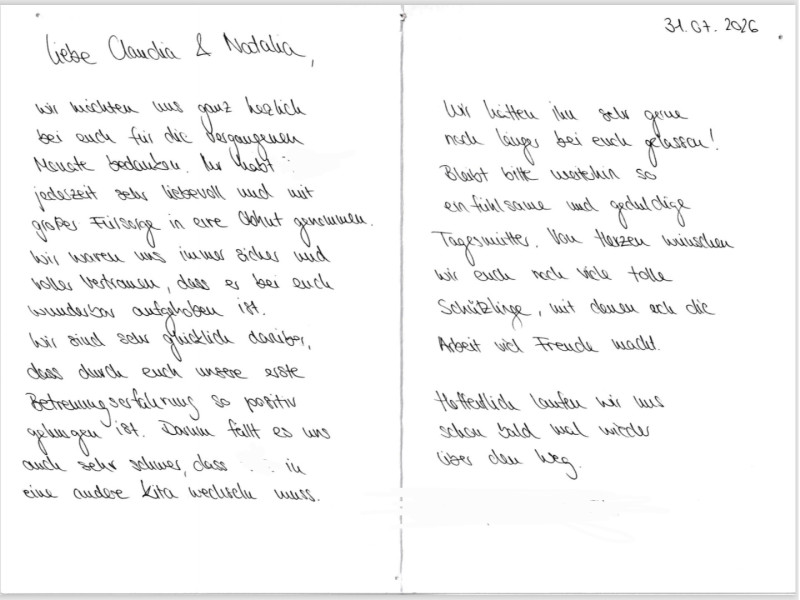 Liebe Claudia & Natalia,
wir möchten uns ganz herzlich
bei euch für die vergangenen
Monate bedanken. Ihr habt
jederzeit sehr liebevoll und mit
großer Fürsorge in eire Obhut genommen.
Wir waren uns immer sicher und
voller Vertrauen, dass er bei euch
wunderbar aufgehoben ist.
Wir sind sehr glücklich darüber,
dass durch euch unsere erste
Betreuungserfahrung so positiv
gelungen ist. Darum fällt es uns
auch sehr schwer, dass in
eine andere Kita wechseln muss.
31.07.2026
Wir hätten ihn sehr gerne
noch länger bei euch gelassen!
Bleibt bitte weiterhin so
einfühlsame und geduldige
Tagesmütter. Von Herzen wünschen
wir euch noch viele tolle
Schützlinge, mit denen euch die
Arbeit viel Freude macht.
Hoffentlich laufen wir uns
schon bald mal wieder
über den Weg.